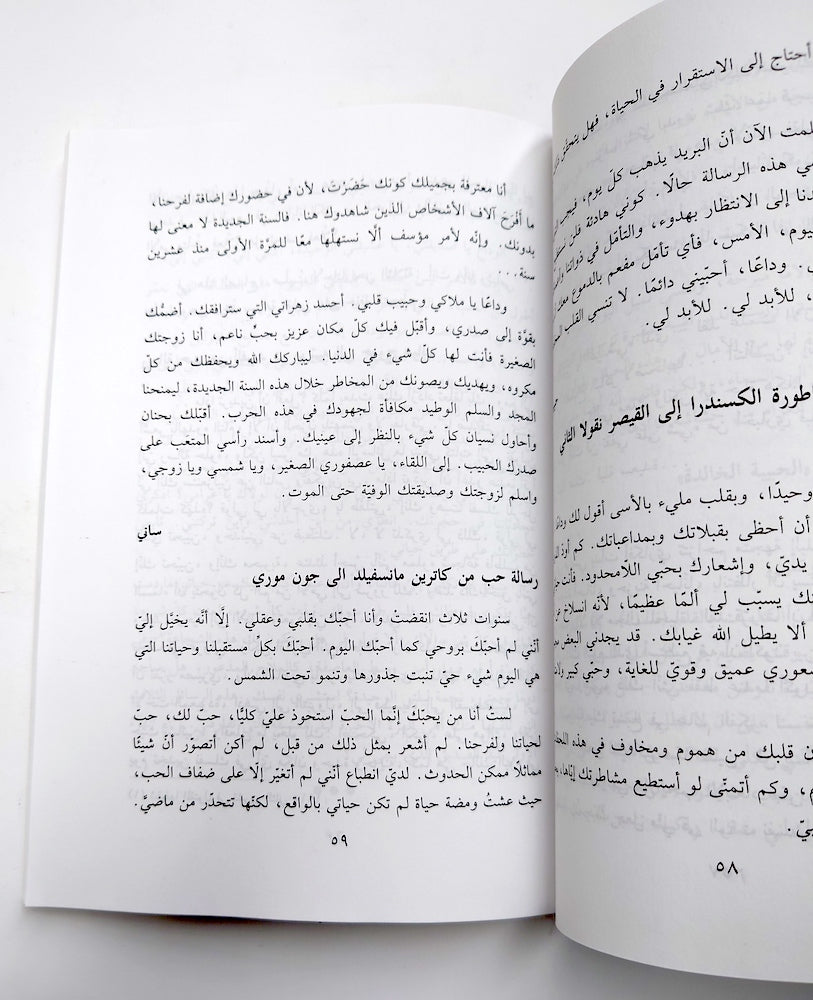 أحتاج إلى الاستقرار في الحياة، فهل يتحقق
لمت الآن أنّ البريد يذهب كلّ يوم، فيجب
ي هذه الرسالة حالًا. كوني هادئة فلن
دنا إلى الانتظار بهدوء، والتأمّل في ذواتنا
ليوم، الأمس، فأي تأمّل مفعم بالدموع
. وداعًا، أحبّيني دائمًا. لا تنسي القلب
، للأبد لي. للأبد لي.
اطورة الكسندرا إلى القيصر نقولا الثاني
وحيدًا، وبقلب مليء بالأسى أقول لك
أن أحظى بقبلاتك وبمداعباتك. كم أودّ
يديّ، وإشعارك بحبّي اللّامحدود. فأنت
نك يسبّب لي ألمًا عظيمًا، لأنه انسلاخ
ألا يطيل الله غيابك. قد يجدني البعض
سعوري عميق وقويّ للغاية، وحبّي كبير
ن قلبك من هموم ومخاوف في هذه
م، وكم أتمنّى لو أستطيع مشاطرتك إيّاها،
بيّ.
٥٨
أنا معترفة بجميلك كونك حَضَرْتَ، لأن في حضورك إضافة لفرحنا،
ما أَفْرَحَ آلاف الأشخاص الذين شاهدوك هنا. فالسنة الجديدة لا معنى لها
بدونك. وإنّه لأمر مؤسف ألّا نستهلّها معًا للمرّة الأولى منذ عشرين
سنة...
وداعًا يا ملاكي وحبيب قلبي. أحسد زهراتي التي سترافقك. أضمُّك
بقوّة إلى صدري، وأقبّل فيك كلّ مكان عزيز بحبٍّ ناعم، أنا زوجتك
الصغيرة فأنت لها كلّ شيء في الدنيا. ليباركك الله ويحفظك من كلّ
مكروه، ويهديك ويصونك من المخاطر خلال هذه السنة الجديدة، ليمنحنا
المجد والسلم الوطيد مكافأة لجهودك في هذه الحرب. أقبّلك بحنان
وأحاول نسيان كلّ شيء بالنظر إلى عينيك. وأسند رأسي المتعَب على
صدرك الحبيب. إلى اللقاء، يا عصفوري الصغير، ويا شمسي ويا زوجي،
واسلم لزوجتك وصديقتك الوفيّة حتى الموت.
ساني
رسالة حب من كاترين مانسفيلد الى جون موري
سنوات ثلاث انقضتْ وأنا أحبّك بقلبي وعقلي. إلّا أنَّه يخيَّل إليّ
أنّني لم أحبّكَ بروحي كما أحبّك اليوم. أحبّكَ بكلِّ مستقبلنا وحياتنا التي
هي اليوم شيء حيّ تنبت جذورها وتنمو تحت الشمس.
لستُ أنا من يحبّكَ إنَّما الحبّ استحوذ عليّ كليًّا، حبّ لك، حبّ
لحياتنا ولفرحنا. لم أشعر بمثل ذلك من قبل، لم أكن أتصوّر أنّ شيئًا
مماثلًا ممكن الحدوث. لديّ انطباع أنّني لم أتغيّر إلّا على ضفاف الحب،
حيث عشتُ ومضة حياة لم تكن حياتي بالواقع، لكنّها تتحدّر من ماضيَّ.
٥٩